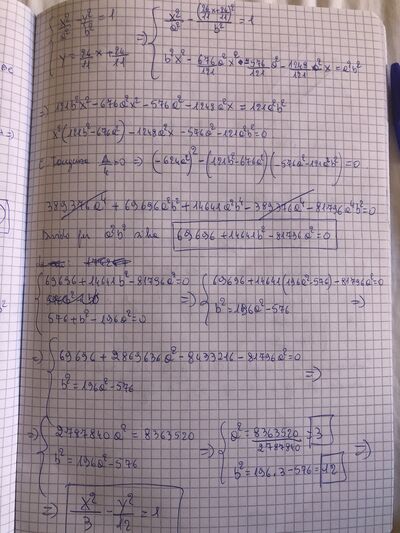 x²/a² - y²/b² = 1
y = 26/11 x + 24/11
=> x²/a² - (26/11 x + 24/11)²/b² = 1
b²x² - 676/121 a²x² - 576/121 a² - 1248/121 a²x = a²b²
=> 121b²x² - 676a²x² - 576a² - 1248a²x = 121a²b²
x²(121b² - 676a²) - 1248a²x - 576a² - 121a²b² = 0
Δ/4 = 0 => (-624a²)² - (121b² - 676a²)(-576a² - 121a²b²) = 0
389376a⁴ + 69696a²b² + 14641a²b⁴ - 389376a⁴ - 81796a⁴b² = 0
a²b² 69696 + 14641b² - 81796a² = 0
69696 + 14641b² - 81796a² = 0
576 + b² - 196a² = 0
=> 69696 + 14641(196a² - 576) - 81796a² = 0
b² = 196a² - 576 =>
=> 69696 + 2869636a² - 8433216 - 81796a² = 0
b² = 196a² - 576 =>
=> 2787840a² = 8363520
b² = 196a² - 576
=> a² = 8363520/2787840 = 3
b² = 196·3 - 576 = 12 =>
=> x²/3 - y²/12 = 1